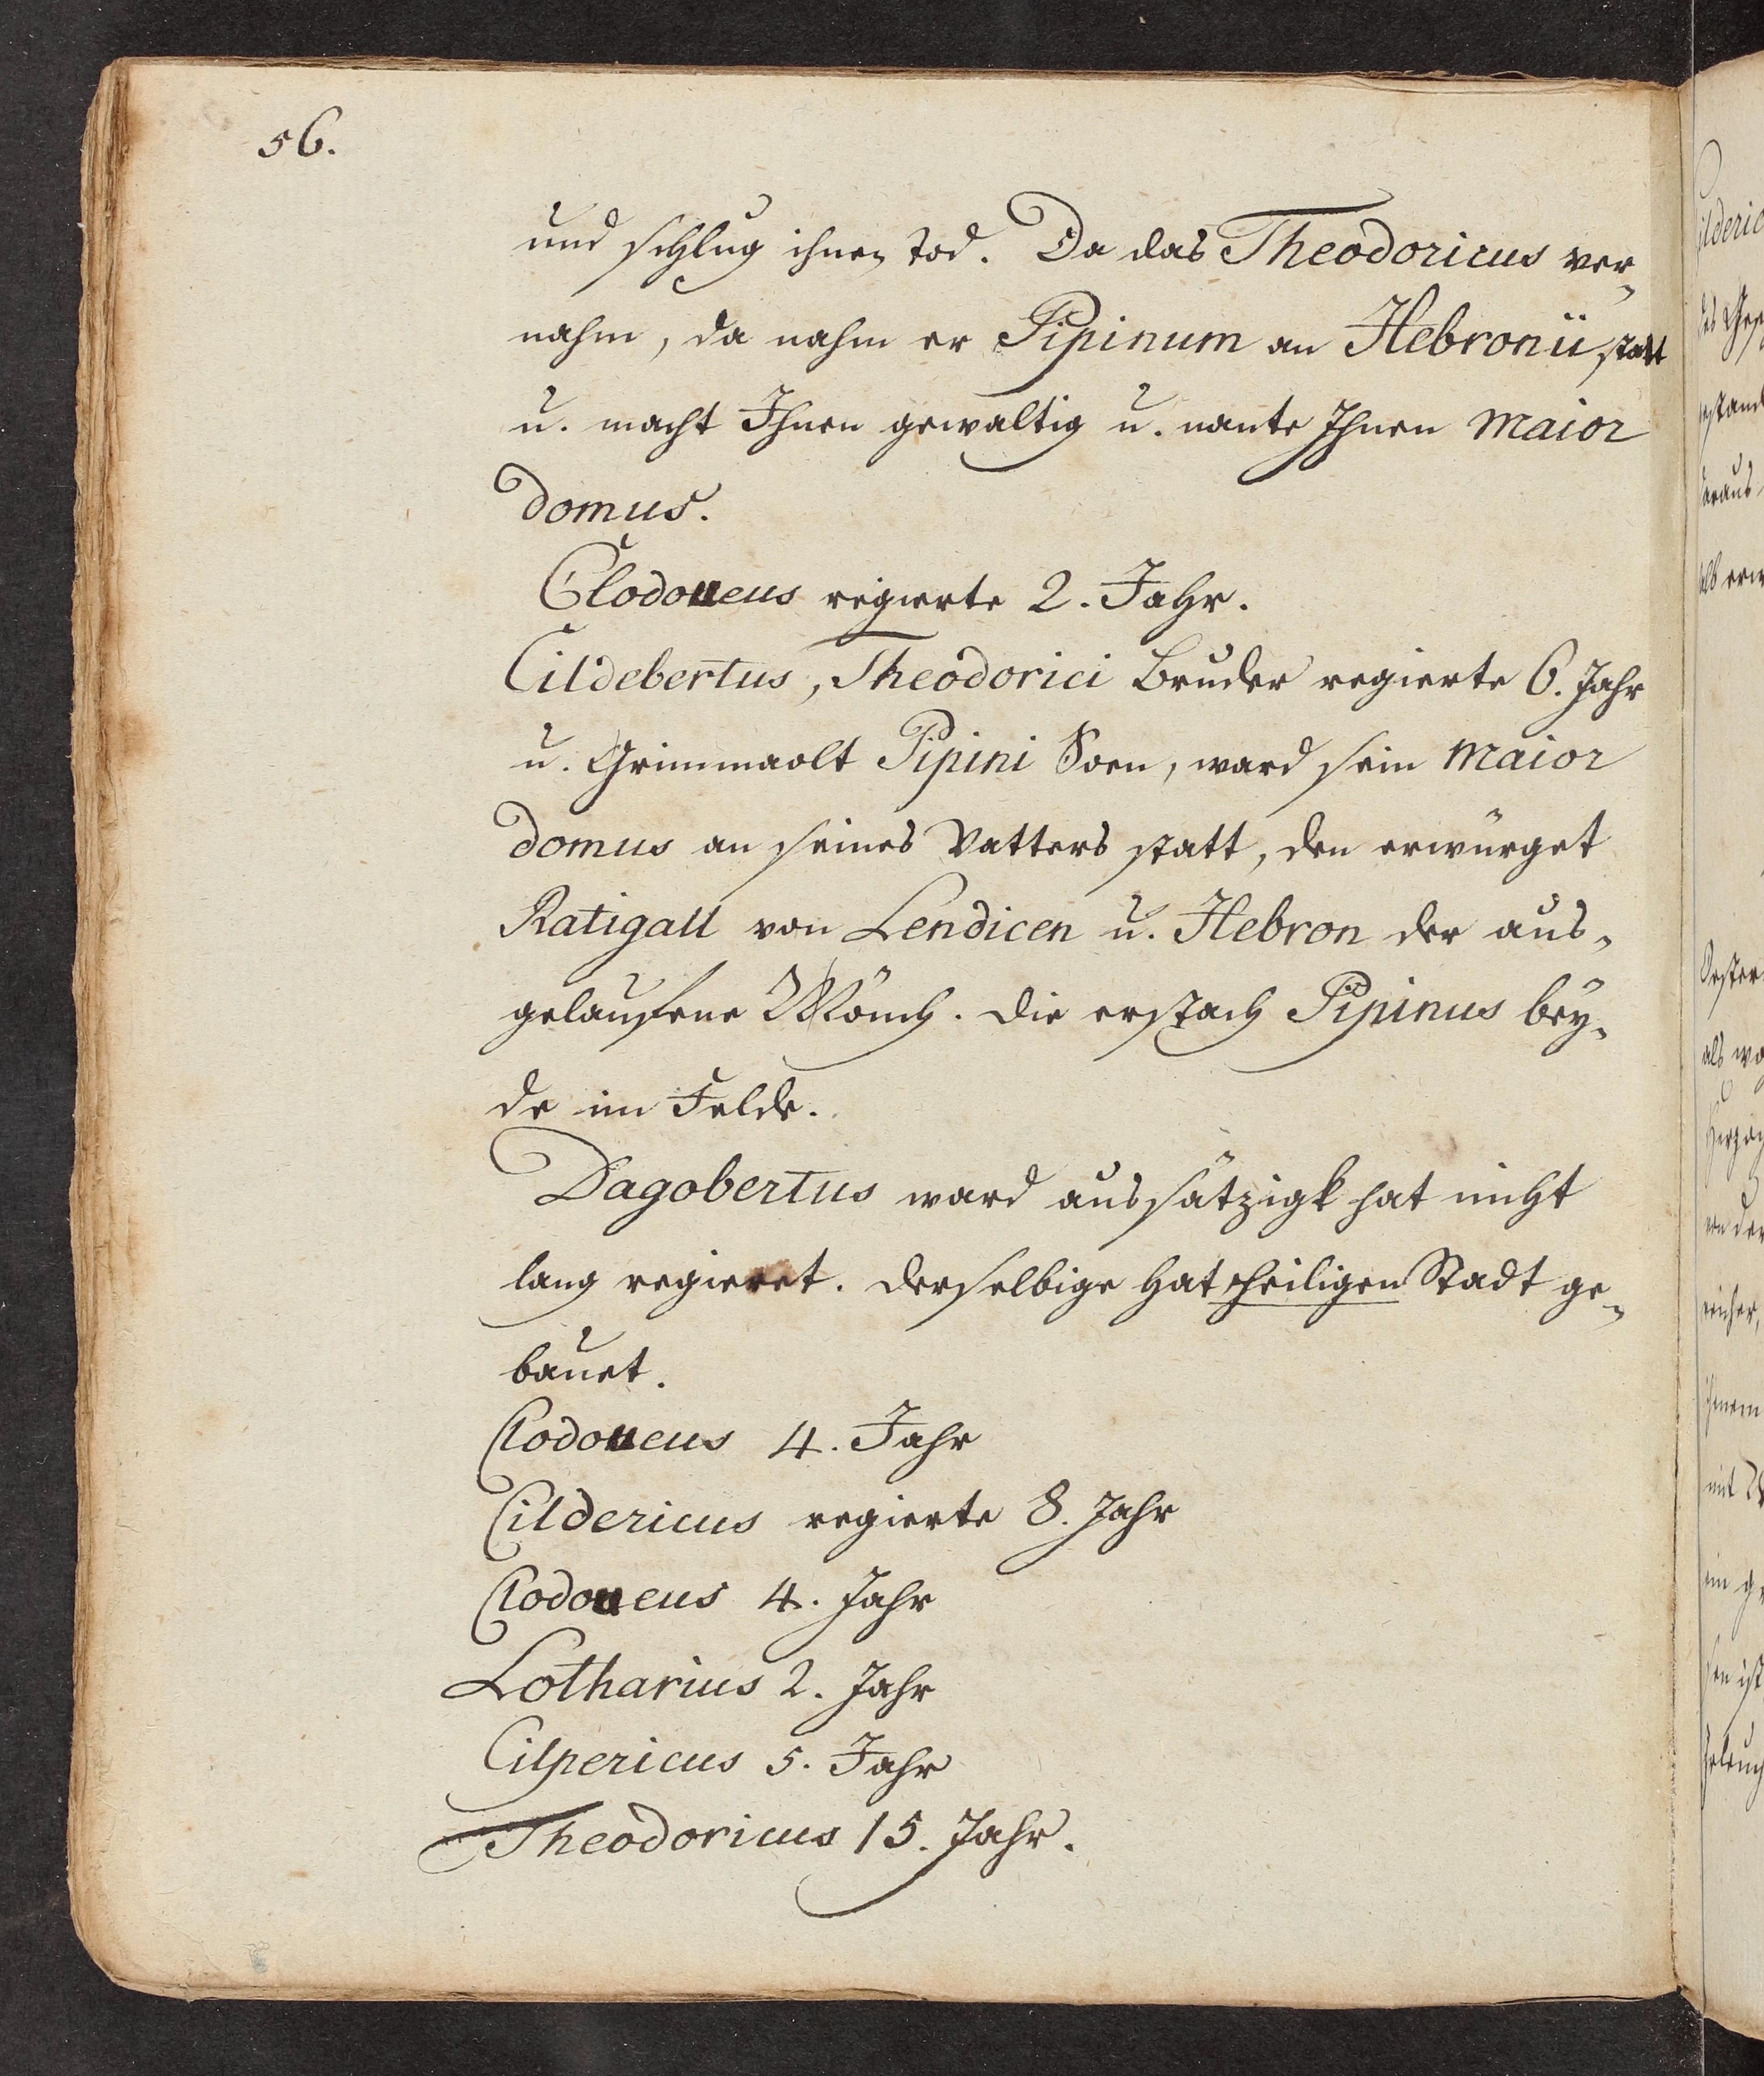 56.
und schlug ihnen tod. Da das Theodoricus ver¬
nahm, da nahm er Pipinum an Hebronii statt
u. macht Ihnen gewaltig u. nante Ihnen Maior
domus.
Clodoueus regierte 2. Jahr.
Cildebertus, Theodorici Bruder regierte 6. Jahr
u. Grimmaolt Pipini Soen, ward sein Maior
domus an seines Vatters statt, den erwürget
Ratigall von Lendicen u. Hebron der aus¬
gelaufene Mönch. Die erstach Pipinus bey¬
de im Felde.
Dagobertus ward aussätzigk hat nicht
lang regieret. derselbige hat heiligen Stadt ge¬
bauet.
Clodoueus 4. Jahr
Cildericus regierte 8. Jahr
Clodoueus 4. Jahr
Lotharius 2. Jahr
Cilpericus 5. Jahr
Theodoricus 15. Jahr.